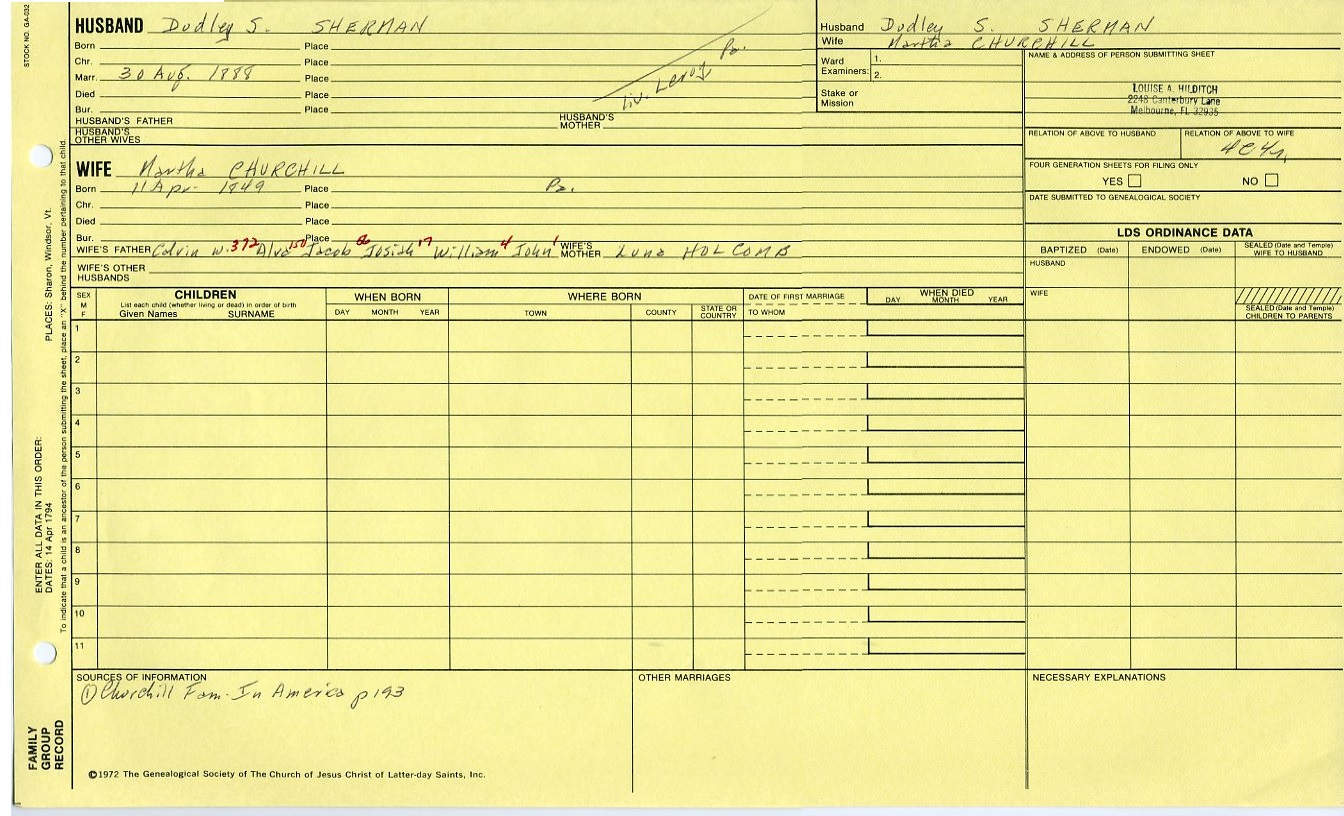 STOCK NO. GA-032
HUSBAND Dudley S. SHERMAN
Born Place
Chr. Place
Marr. 30 Aug. 1888 Place
Died Place
Bur. Place
Liv. Leroy Pa.
HUSBAND'S FATHER HUSBAND'S MOTHER
HUSBAND'S OTHER WIVES
WIFE Martha CHURCHILL
Born 11 Apr 1849 Place Pa.
Chr. Place
Died Place
Bur. Place
WIFE'S FATHER Calvin W. 372 Alva 150 Jacob Josiah 17 William 4 John 1 WIFE'S MOTHER Luna HOLCOMB
WIFE'S OTHER HUSBANDS
Husband Dudley S. SHERMAN
Wife Martha CHURCHILL
Ward Examiners: 1.
2.
Stake or Mission
NAME & ADDRESS OF PERSON SUBMITTING SHEET
LOUISE A. HILDITCH
2248 Canterbury Lane
Melbourne, FL 32935
RELATION OF ABOVE TO HUSBAND RELATION OF ABOVE TO WIFE
FOUR GENERATION SHEETS FOR FILING ONLY
YES NO
DATE SUBMITTED TO GENEALOGICAL SOCIETY
LDS ORDINANCE DATA
BAPTIZED (Date) ENDOWED (Date) SEALED (Date and Temple) WIFE TO HUSBAND
HUSBAND
WIFE
SEALED (Date and Temple) CHILDREN TO PARENTS
SEX M F
CHILDREN
List each child (whether living or dead) in order of birth
Given Names SURNAME
WHEN BORN
DAY MONTH YEAR
WHERE BORN
TOWN COUNTY STATE OR COUNTRY
DATE OF FIRST MARRIAGE
TO WHOM
WHEN DIED
DAY MONTH YEAR
1
2
3
4
5
6
7
8
9
10
11
SOURCES OF INFORMATION
① Churchill Fam. In America p 193
OTHER MARRIAGES
NECESSARY EXPLANATIONS
©1972 The Genealogical Society of The Church of Jesus Christ of Latter-day Saints, Inc.
PLACES: Sharon, Windsor, Vt.
To indicate that a child is an ancestor of the person submitting the sheet, place an "X" behind the number pertaining to that child.
ENTER ALL DATA IN THIS ORDER:
DATES: 14 Apr 1794
FAMILY GROUP RECORD